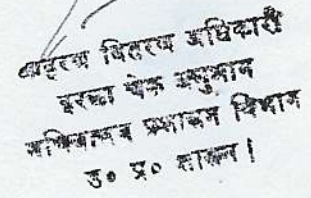 आहरण वितरण अधिकारी
इरला चेक अनुभाग
सचिवालय प्रशासन विभाग
उ० प्र० शासन।